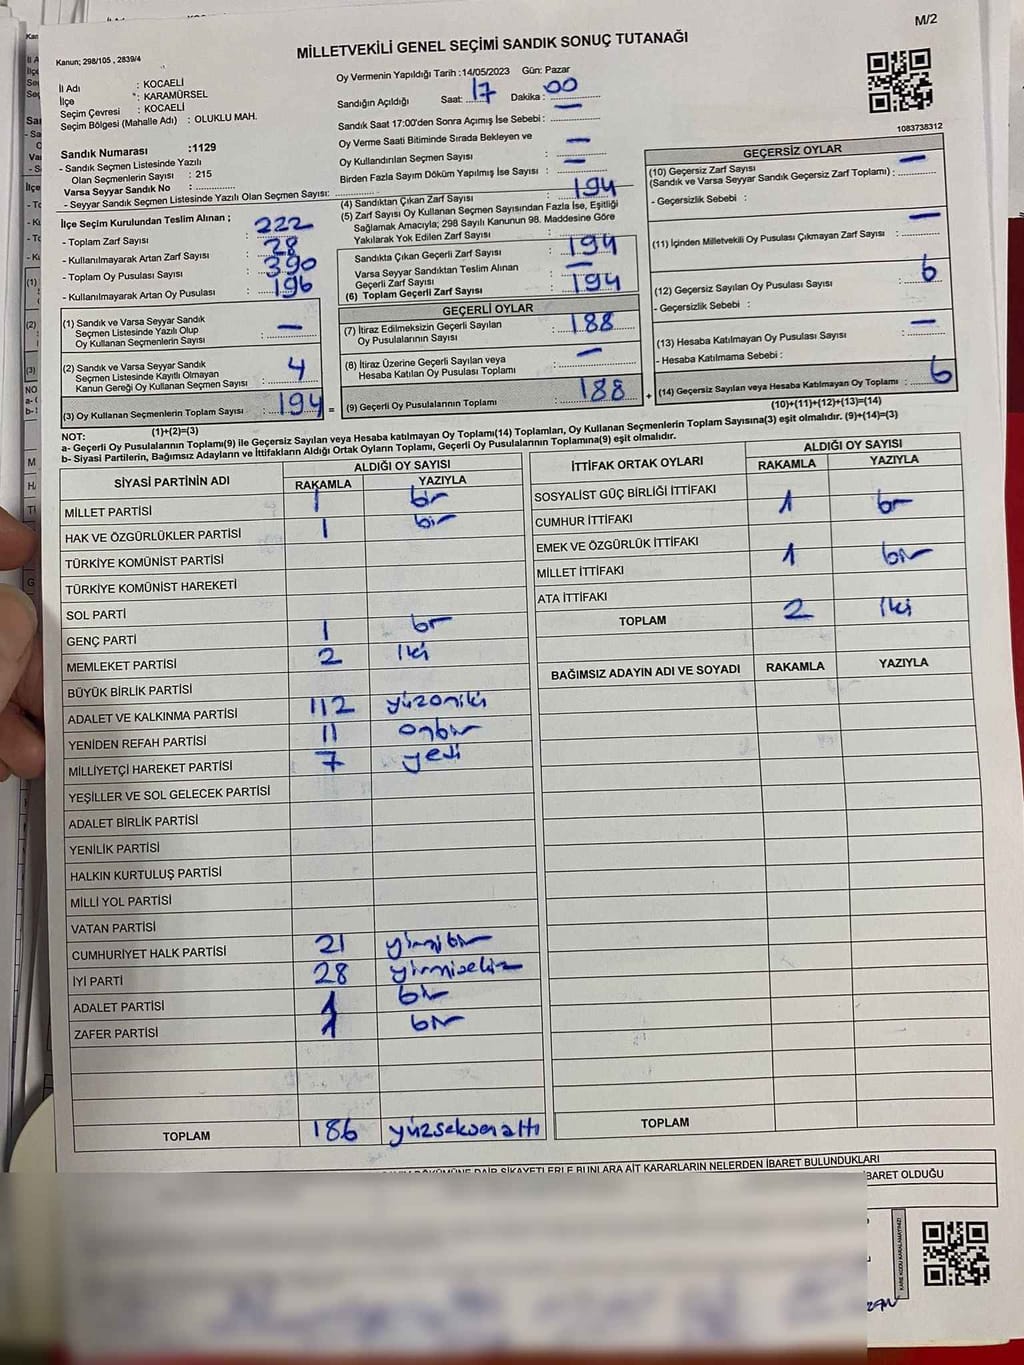 M/2
Kanun; 298/105 , 2839/4
MİLLETVEKİLİ GENEL SEÇİMİ SANDIK SONUÇ TUTANAĞI
İl Adı : KOCAELİ
İlçe : KARAMÜRSEL
Seçim Çevresi : KOCAELİ
Seçim Bölgesi (Mahalle Adı) : OLUKLU MAH.
Oy Vermenin Yapıldığı Tarih :14/05/2023 Gün: Pazar
Sandığın Açıldığı Saat: 17 Dakika : 00
Sandık Saat 17:00'den Sonra Açımış İse Sebebi : —
Oy Verme Saati Bitiminde Sırada Bekleyen ve
Oy Kullandırılan Seçmen Sayısı : —
Birden Fazla Sayım Döküm Yapılmış İse Sayısı : —
1083738312
Sandık Numarası :1129
- Sandık Seçmen Listesinde Yazılı
Olan Seçmenlerin Sayısı : 215
Varsa Seyyar Sandık No :
- Seyyar Sandık Seçmen Listesinde Yazılı Olan Seçmen Sayısı:
İlçe Seçim Kurulundan Teslim Alınan ;
- Toplam Zarf Sayısı : 222
- Kullanılmayarak Artan Zarf Sayısı : 28
- Toplam Oy Pusulası Sayısı : 390
- Kullanılmayarak Artan Oy Pusulası : 196
(1) Sandık ve Varsa Seyyar Sandık
Seçmen Listesinde Yazılı Olup
Oy Kullanan Seçmenlerin Sayısı : —
(2) Sandık ve Varsa Seyyar Sandık
Seçmen Listesinde Kayıtlı Olmayan
Kanun Gereği Oy Kullanan Seçmen Sayısı : 4
(3) Oy Kullanan Seçmenlerin Toplam Sayısı : 194 =
(1)+(2)=(3)
(4) Sandıktan Çıkan Zarf Sayısı : 194
(5) Zarf Sayısı Oy Kullanan Seçmen Sayısından Fazla İse, Eşitliği
Sağlamak Amacıyla; 298 Sayılı Kanunun 98. Maddesine Göre
Yakılarak Yok Edilen Zarf Sayısı :
Sandıkta Çıkan Geçerli Zarf Sayısı : 194
Varsa Seyyar Sandıktan Teslim Alınan
Geçerli Zarf Sayısı : —
(6) Toplam Geçerli Zarf Sayısı : 194
GEÇERLİ OYLAR
(7) İtiraz Edilmeksizin Geçerli Sayılan
Oy Pusulalarının Sayısı : 188
(8) İtiraz Üzerine Geçerli Sayılan veya
Hesaba Katılan Oy Pusulası Toplamı : —
(9) Geçerli Oy Pusulalarının Toplamı : 188 +
GEÇERSİZ OYLAR
(10) Geçersiz Zarf Sayısı
(Sandık ve Varsa Seyyar Sandık Geçersiz Zarf Toplamı) : —
- Geçersizlik Sebebi :
(11) İçinden Milletvekili Oy Pusulası Çıkmayan Zarf Sayısı : —
(12) Geçersiz Sayılan Oy Pusulası Sayısı : 6
- Geçersizlik Sebebi :
(13) Hesaba Katılmayan Oy Pusulası Sayısı : —
- Hesaba Katılmama Sebebi :
(14) Geçersiz Sayılan veya Hesaba Katılmayan Oy Toplamı : 6
(10)+(11)+(12)+(13)=(14)
NOT:
a- Geçerli Oy Pusulalarının Toplamı(9) ile Geçersiz Sayılan veya Hesaba katılmayan Oy Toplamı(14) Toplamları, Oy Kullanan Seçmenlerin Toplam Sayısına(3) eşit olmalıdır. (9)+(14)=(3)
b- Siyasi Partilerin, Bağımsız Adayların ve İttifakların Aldığı Ortak Oyların Toplamı, Geçerli Oy Pusulalarının Toplamına(9) eşit olmalıdır.
SİYASİ PARTİNİN ADI ALDIĞI OY SAYISI
RAKAMLA YAZIYLA
MİLLET PARTİSİ 1 bir
HAK VE ÖZGÜRLÜKLER PARTİSİ 1 bir
TÜRKİYE KOMÜNİST PARTİSİ
TÜRKİYE KOMÜNİST HAREKETİ
SOL PARTİ
GENÇ PARTİ 1 bir
MEMLEKET PARTİSİ 2 iki
BÜYÜK BİRLİK PARTİSİ
ADALET VE KALKINMA PARTİSİ 112 yüzoniki
YENİDEN REFAH PARTİSİ 11 onbir
MİLLİYETÇİ HAREKET PARTİSİ 7 yedi
YEŞİLLER VE SOL GELECEK PARTİSİ
ADALET BİRLİK PARTİSİ
YENİLİK PARTİSİ
HALKIN KURTULUŞ PARTİSİ
MİLLİ YOL PARTİSİ
VATAN PARTİSİ
CUMHURİYET HALK PARTİSİ 21 yirmibir
İYİ PARTİ 28 yirmisekiz
ADALET PARTİSİ 1 bir
ZAFER PARTİSİ 1 bir
TOPLAM 186 yüzseksenaltı
İTTİFAK ORTAK OYLARI ALDIĞI OY SAYISI
RAKAMLA YAZIYLA
SOSYALİST GÜÇ BİRLİĞİ İTTİFAKI
CUMHUR İTTİFAKI 1 bir
EMEK VE ÖZGÜRLÜK İTTİFAKI
MİLLET İTTİFAKI 1 bir
ATA İTTİFAKI
TOPLAM 2 iki
BAĞIMSIZ ADAYIN ADI VE SOYADI RAKAMLA YAZIYLA
TOPLAM
DÖKÜMÜNE DAİR ŞİKAYETLERLE BUNLARA AİT KARARLARIN NELERDEN İBARET BULUNDUKLARI
İBARET OLDUĞU
KARE KODU KARALAMAYINIZ!